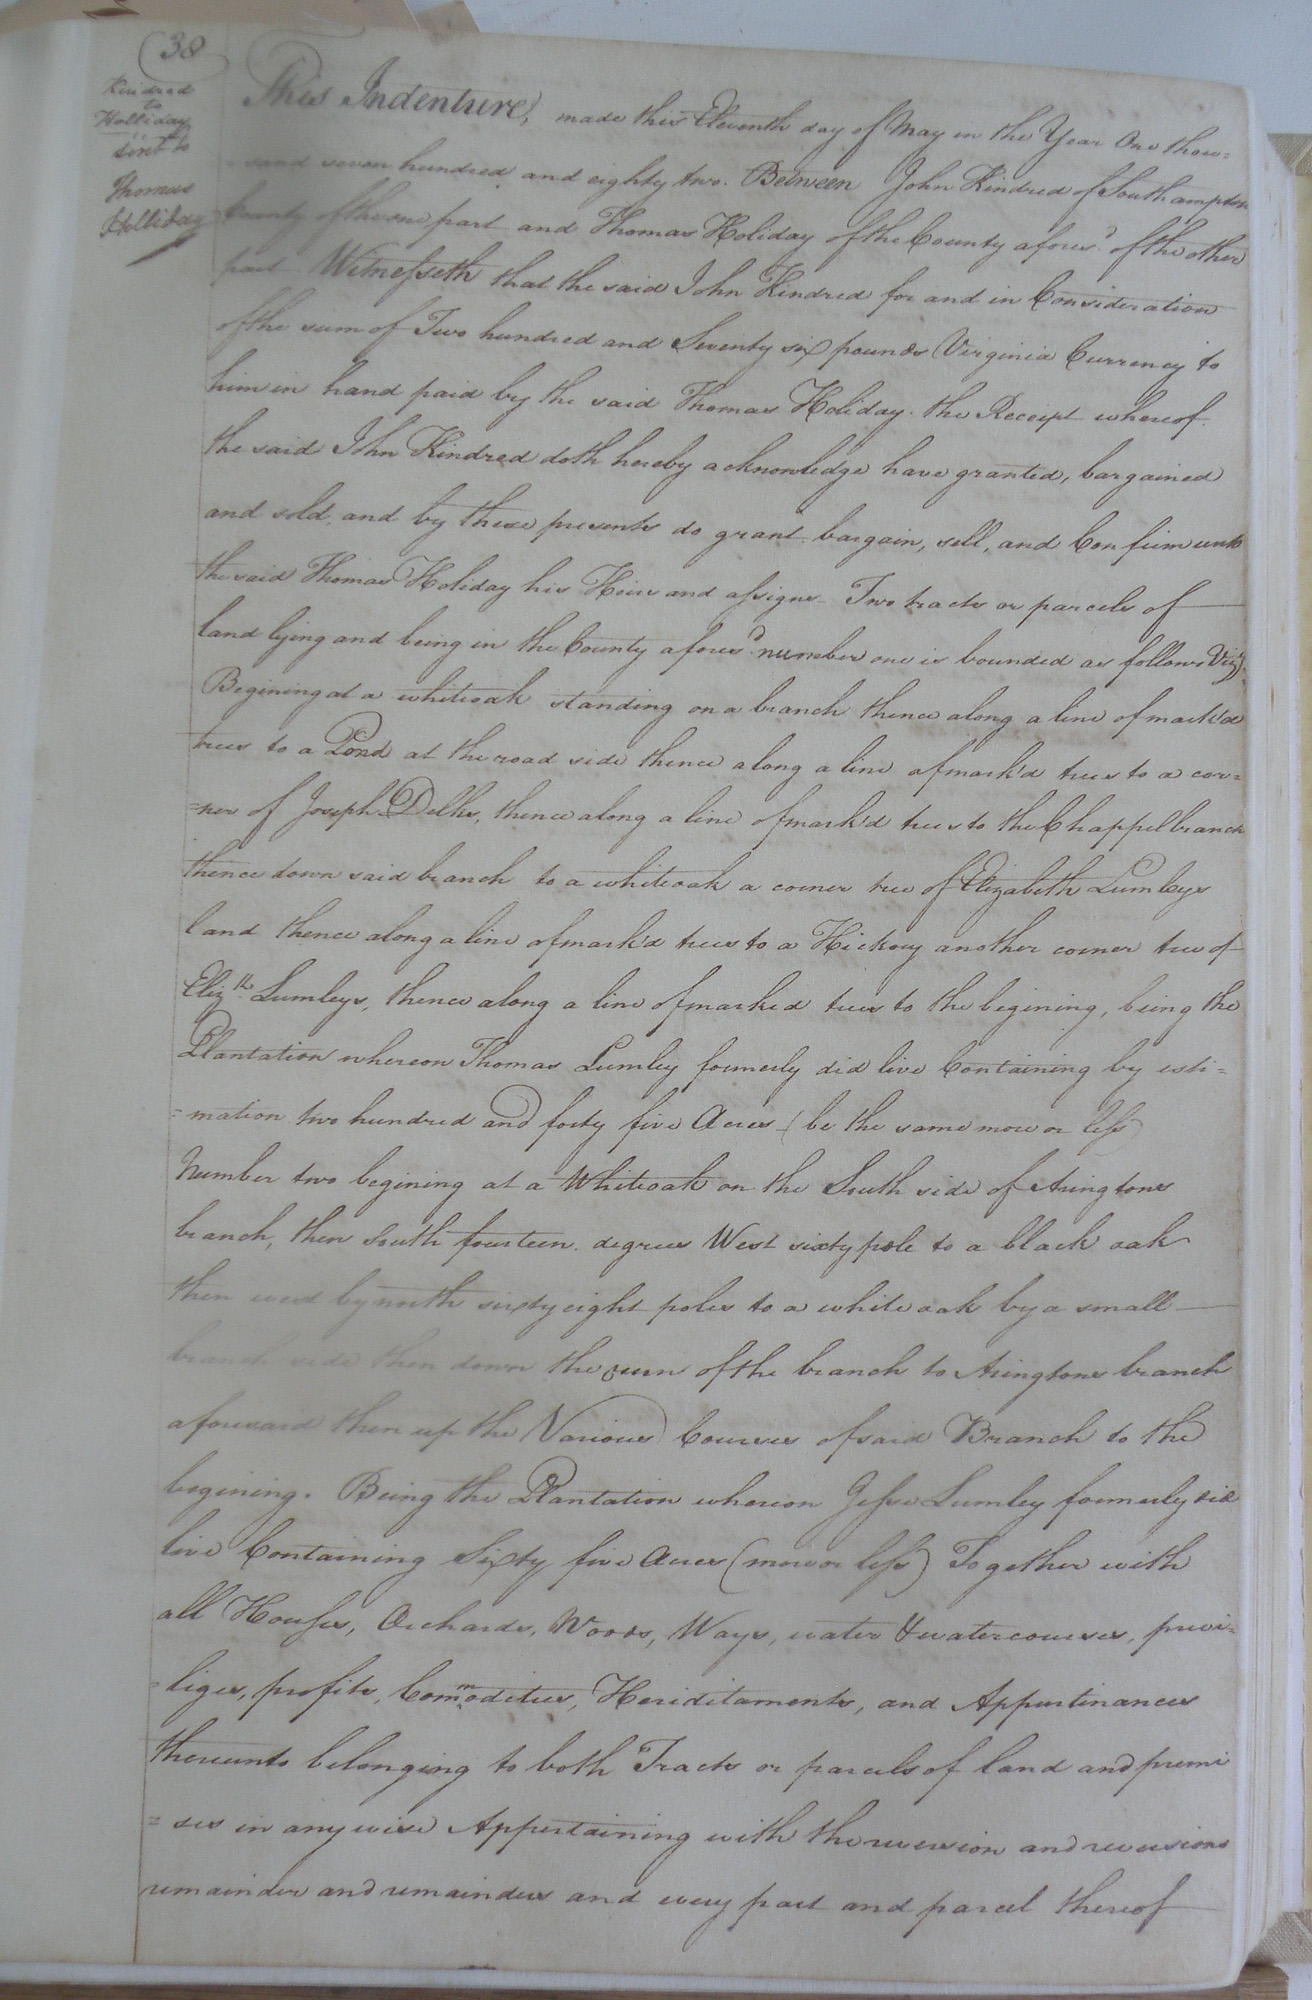 38
Kindred
to
Holliday
sent to
Thomas
Holliday
This Indenture, made this Eleventh day of May in the Year One thou=
=sand seven hundred and eighty two. Between John Kindred of Southampton
County of the one part and Thomas Holiday of the County afores.d of the other
part Witnesseth that the said John Kindred for and in Consideration
of the sum of Two hundred and Seventy six pounds Virginia Currency to
him in hand paid by the said Thomas Holiday. the Receipt whereof.
the said John Kindred doth hereby acknowledge have granted, bargained
and sold, and by these presents do grant bargain, sell, and Confirm unto
the said Thomas Holiday his Heirs and assigns Two tracts or parcels of
land lying and being in the County afores.d number one is bounded as follows Vizt.
Begining at a whiteoak standing on a branch thence along a line of mark'd
trees to a Pond at the road side thence along a line of mark'd trees to a cor=
=ner of Joseph Delks, thence along a line of mark'd trees to the Chappel branch
thence down said branch to a whiteoak a corner tree of Elizabeth Lumleys
land thence along a line of mark'd trees to a Hickory another corner tree of
Eliz.th Lumleys, thence along a line of marked trees to the begining, being the
Plantation whereon Thomas Lumley formerly did live Containing by esti=
=mation two hundred and forty five Acres (be the same more or less)
Number two begining at a Whiteoak on the South side of Aringtons
branch, then South fourteen degrees West sixty pole to a black oak
then west by north sixty eight poles to a white oak by a small
branch side then down the run of the branch to Aringtons branch
aforesaid then up the Various Courses of said Branch to the
begining. Being the Plantation whereon Jesse Lumley formerly did
live Containing Sixty five Acres (more or less) Together with
all Houses, Orchards, Woods, Ways, water & watercourses, privi=
=liges, profits, Commodities, Heriditaments, and Appurtinances
thereunto belonging to both Tracts or parcels of land and premi
=ses in anywise Appertaining with the reversion and reversions
remainder and remainders and every part and parcel thereof